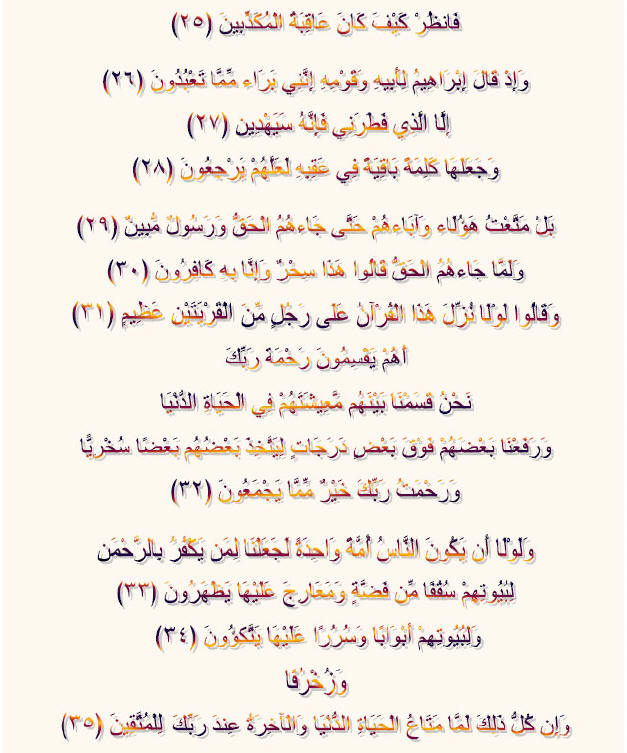 فَانظُرْ كَيْفَ كَانَ عَاقِبَةُ الْمُكَذِّبِينَ (٢٥)
وَإِذْ قَالَ إِبْرَاهِيمُ لِأَبِيهِ وَقَوْمِهِ إِنَّنِي بَرَاء مِّمَّا تَعْبُدُونَ (٢٦)
إِلَّا الَّذِي فَطَرَنِي فَإِنَّهُ سَيَهْدِينِ (٢٧)
وَجَعَلَهَا كَلِمَةً بَاقِيَةً فِي عَقِبِهِ لَعَلَّهُمْ يَرْجِعُونَ (٢٨)
بَلْ مَتَّعْتُ هَؤُلَاء وَآبَاءهُمْ حَتَّى جَاءهُمُ الْحَقُّ وَرَسُولٌ مُّبِينٌ (٢٩)
وَلَمَّا جَاءهُمُ الْحَقُّ قَالُوا هَذَا سِحْرٌ وَإِنَّا بِهِ كَافِرُونَ (٣٠)
وَقَالُوا لَوْلَا نُزِّلَ هَذَا الْقُرْآنُ عَلَى رَجُلٍ مِّنَ الْقَرْيَتَيْنِ عَظِيمٍ (٣١)
أَهُمْ يَقْسِمُونَ رَحْمَةَ رَبِّكَ
نَحْنُ قَسَمْنَا بَيْنَهُم مَّعِيشَتَهُمْ فِي الْحَيَاةِ الدُّنْيَا
وَرَفَعْنَا بَعْضَهُمْ فَوْقَ بَعْضٍ دَرَجَاتٍ لِيَتَّخِذَ بَعْضُهُم بَعْضًا سُخْرِيًّا
وَرَحْمَتُ رَبِّكَ خَيْرٌ مِّمَّا يَجْمَعُونَ (٣٢)
وَلَوْلَا أَن يَكُونَ النَّاسُ أُمَّةً وَاحِدَةً لَجَعَلْنَا لِمَن يَكْفُرُ بِالرَّحْمَنِ
لِبُيُوتِهِمْ سُقُفًا مِّن فَضَّةٍ وَمَعَارِجَ عَلَيْهَا يَظْهَرُونَ (٣٣)
وَلِبُيُوتِهِمْ أَبْوَابًا وَسُرُرًا عَلَيْهَا يَتَّكِؤُونَ (٣٤)
وَزُخْرُفًا
وَإِن كُلُّ ذَلِكَ لَمَّا مَتَاعُ الْحَيَاةِ الدُّنْيَا وَالْآخِرَةُ عِندَ رَبِّكَ لِلْمُتَّقِينَ (٣٥)